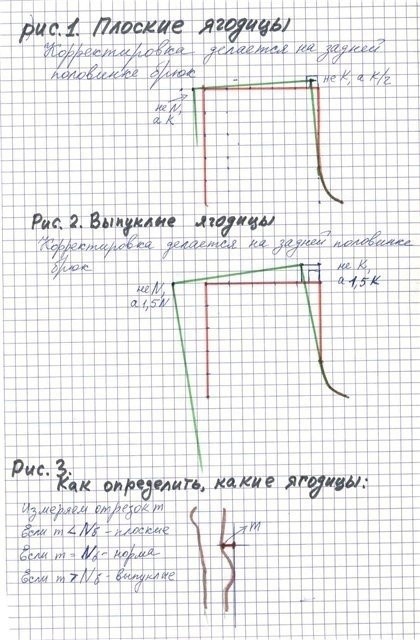 рис.1. Плоские ягодицы
Корректировка делается на задней
половинке брюк
не К, а К/2
не N,
а К
Рис. 2. Выпуклые ягодицы
Корректировка делается на задней половинке
брюк
не К,
а 1,5 К
не N,
а 1,5 N
Рис. 3.
Как определить, какие ягодицы:
Измеряем отрезок m
Если m < Nб - плоские
Если m = Nб - норма
Если m > Nб - выпуклые
m